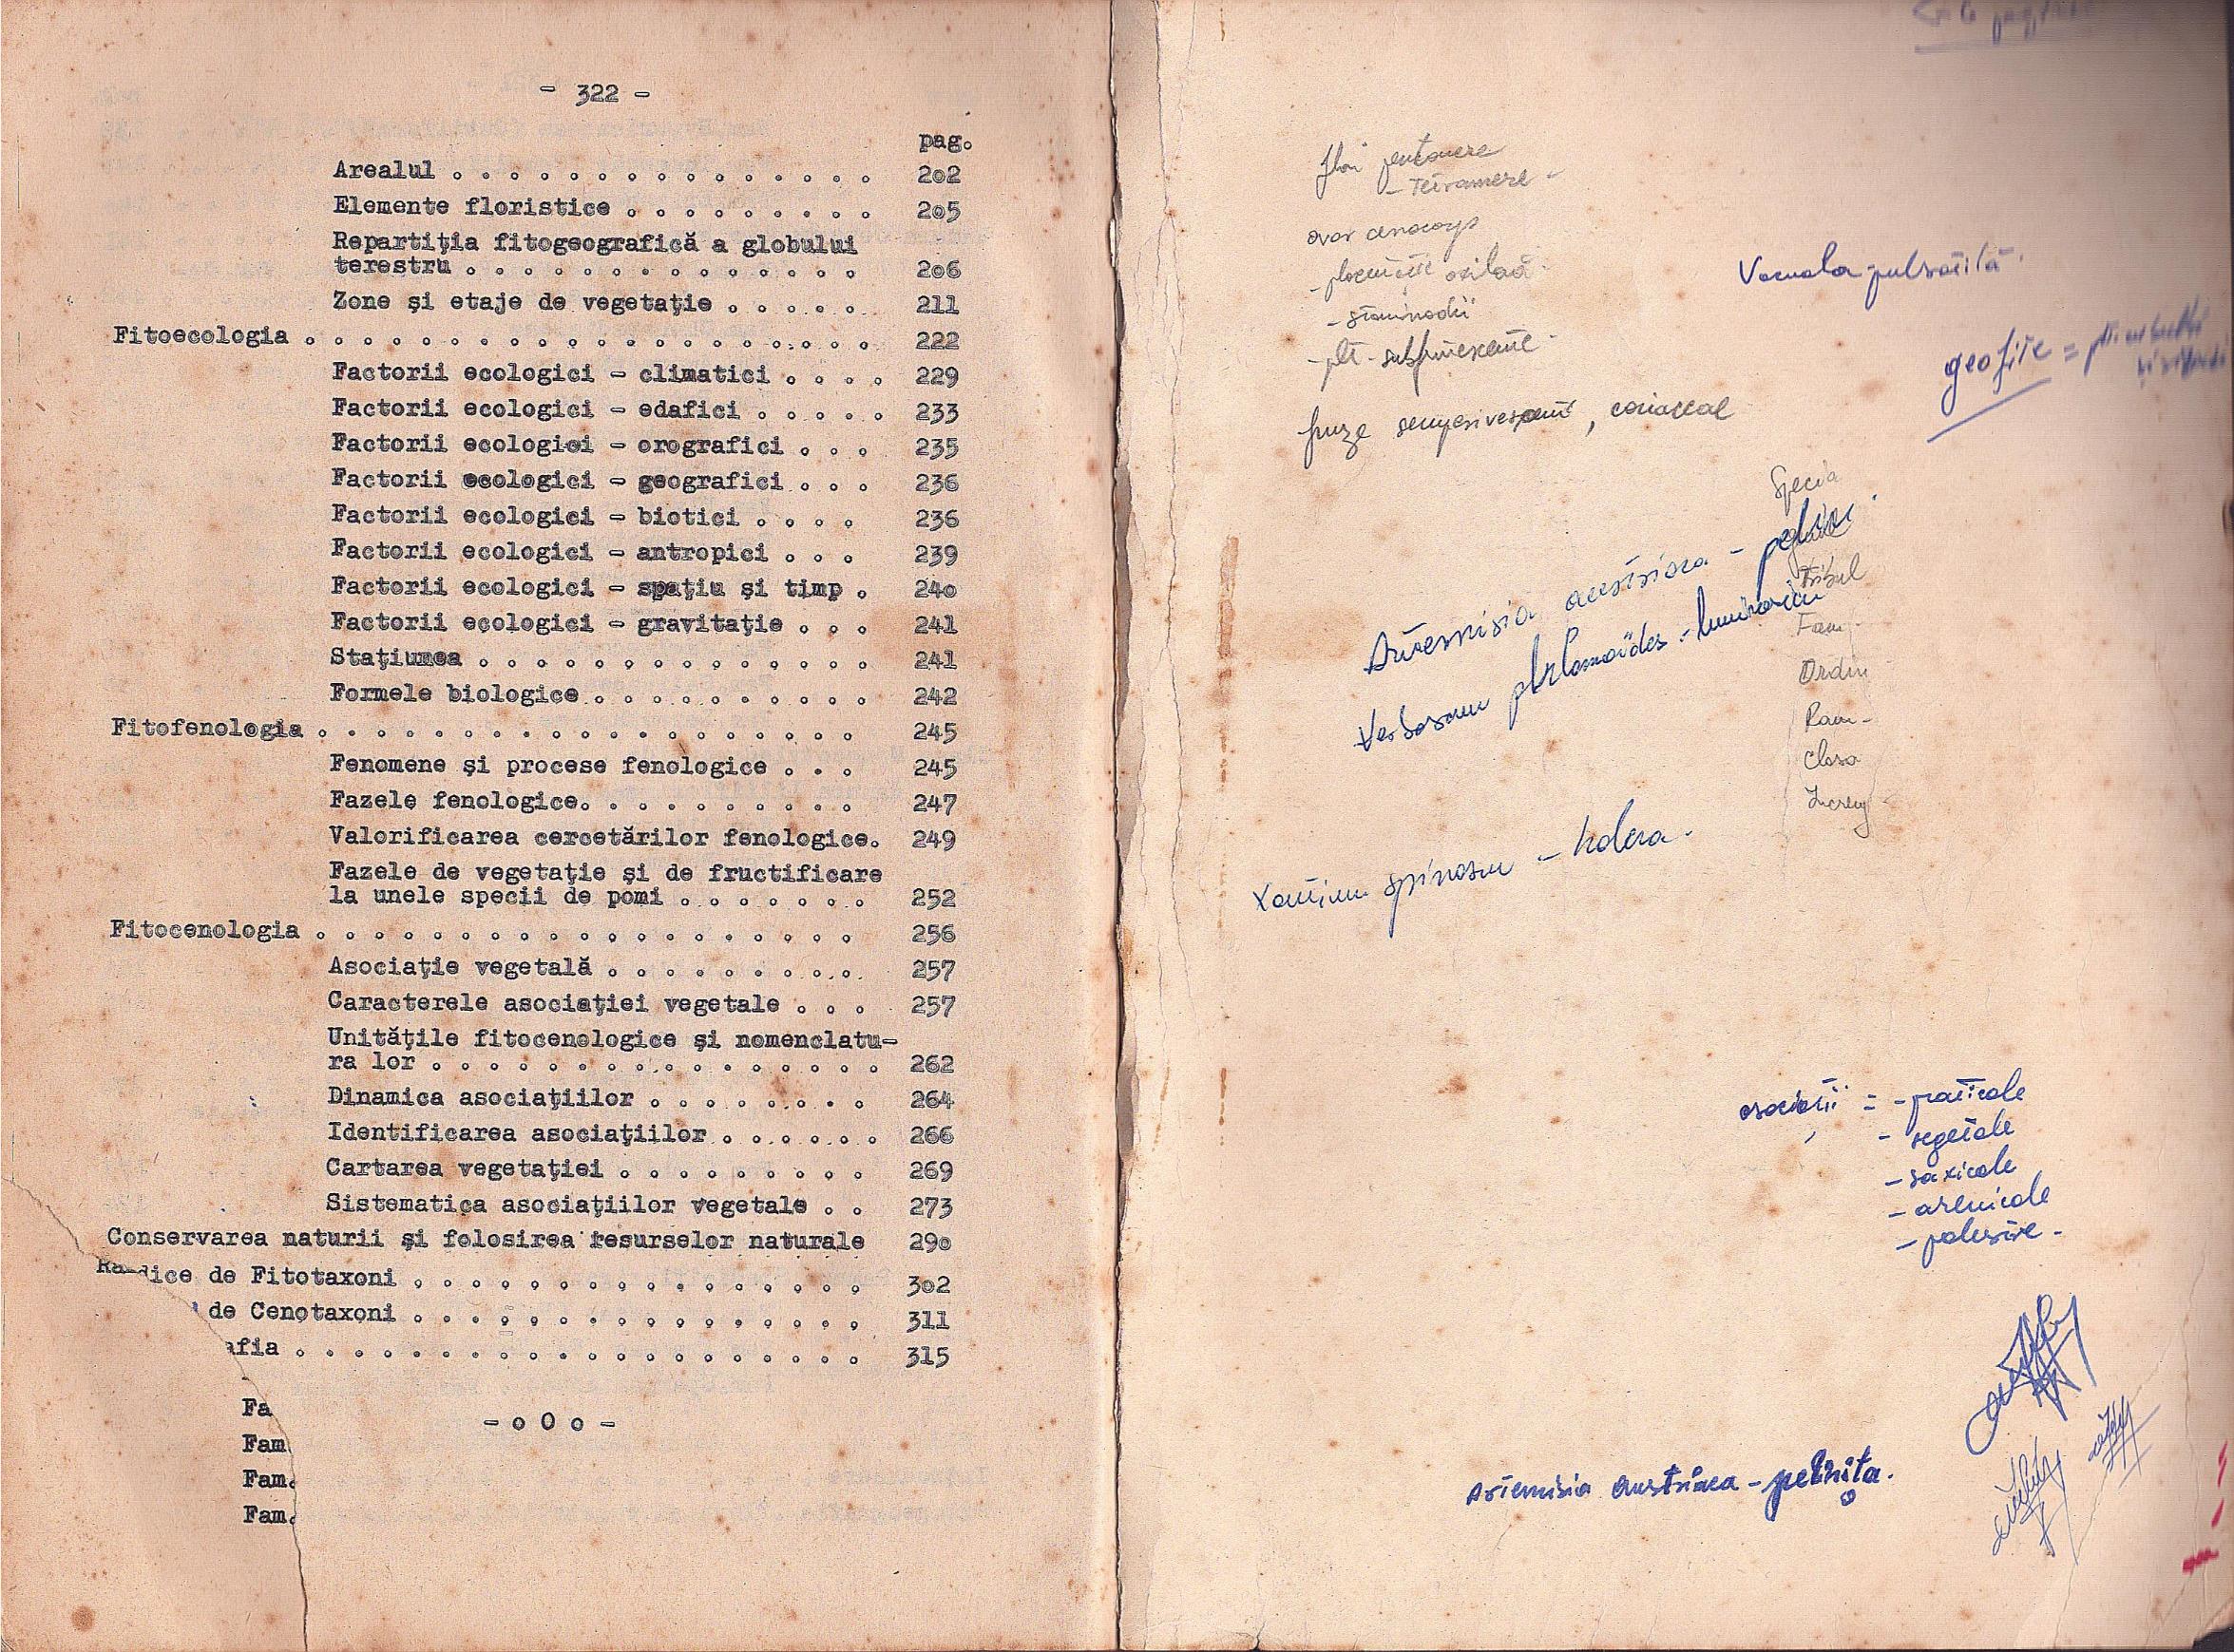 - 322 -
pag.
Arealul . . . . . . . . . . . . . . . 202
Elemente floristice . . . . . . . . . 205
Repartiţia fitogeografică a globului
terestru . . . . . . . . . . . . . . 206
Zone şi etaje de vegetaţie . . . . . 211
Fitoecologia . . . . . . . . . . . . . . . . . . . . 222
Factorii ecologici - climatici . . . . 229
Factorii ecologici - edafici . . . . . 233
Factorii ecologici - orografici . . . 235
Factorii ecologici - geografici . . . 236
Factorii ecologici - biotici . . . . 236
Factorii ecologici - antropici . . . 239
Factorii ecologici - spaţiu şi timp . 240
Factorii ecologici - gravitaţie . . . 241
Staţiunea . . . . . . . . . . . . . . 241
Formele biologice . . . . . . . . . . 242
Fitofenologia . . . . . . . . . . . . . . . . . . . 245
Fenomene şi procese fenologice . . . 245
Fazele fenologice. . . . . . . . . . 247
Valorificarea cercetărilor fenologice. 249
Fazele de vegetaţie şi de fructificare
la unele specii de pomi . . . . . . . 252
Fitocenologia . . . . . . . . . . . . . . . . . . . 256
Asociaţie vegetală . . . . . . . . . 257
Caracterele asociaţiei vegetale . . . 257
Unităţile fitocenologice şi nomenclatu-
ra lor . . . . . . . . . . . . . . . . 262
Dinamica asociaţiilor . . . . . . . . 264
Identificarea asociaţiilor . . . . . . 266
Cartarea vegetaţiei . . . . . . . . . 269
Sistematica asociaţiilor vegetale . . 273
Conservarea naturii şi folosirea resurselor naturale 290
dice de Fitotaxoni . . . . . . . . . . . . . . . . 302
de Cenotaxoni . . . . . . . . . . . . . . . . 311
afia . . . . . . . . . . . . . . . . . . . . 315
Fa
- o O o -
Fam
Fam.
Fam.
flori pentamere
- tetramere -
ovar cenocarp
- placentaţie axilară
- staminodii
- plt - subfrutescente -
frunze sempervirescente, coriaceae
Vacuola pulsatilă
geofite =
Specia
Artemisia austriaca - peliniţa
Tribul
Verbascum phlomoides - luminărică
Fam -
Ordin
Ram -
Clasa
Increng -
Xantium spinosum - holera.
asociaţii = - praticole
- segetale
- saxicole
- arenicole
- palustre -
Artemisia austriaca - peliniţa.